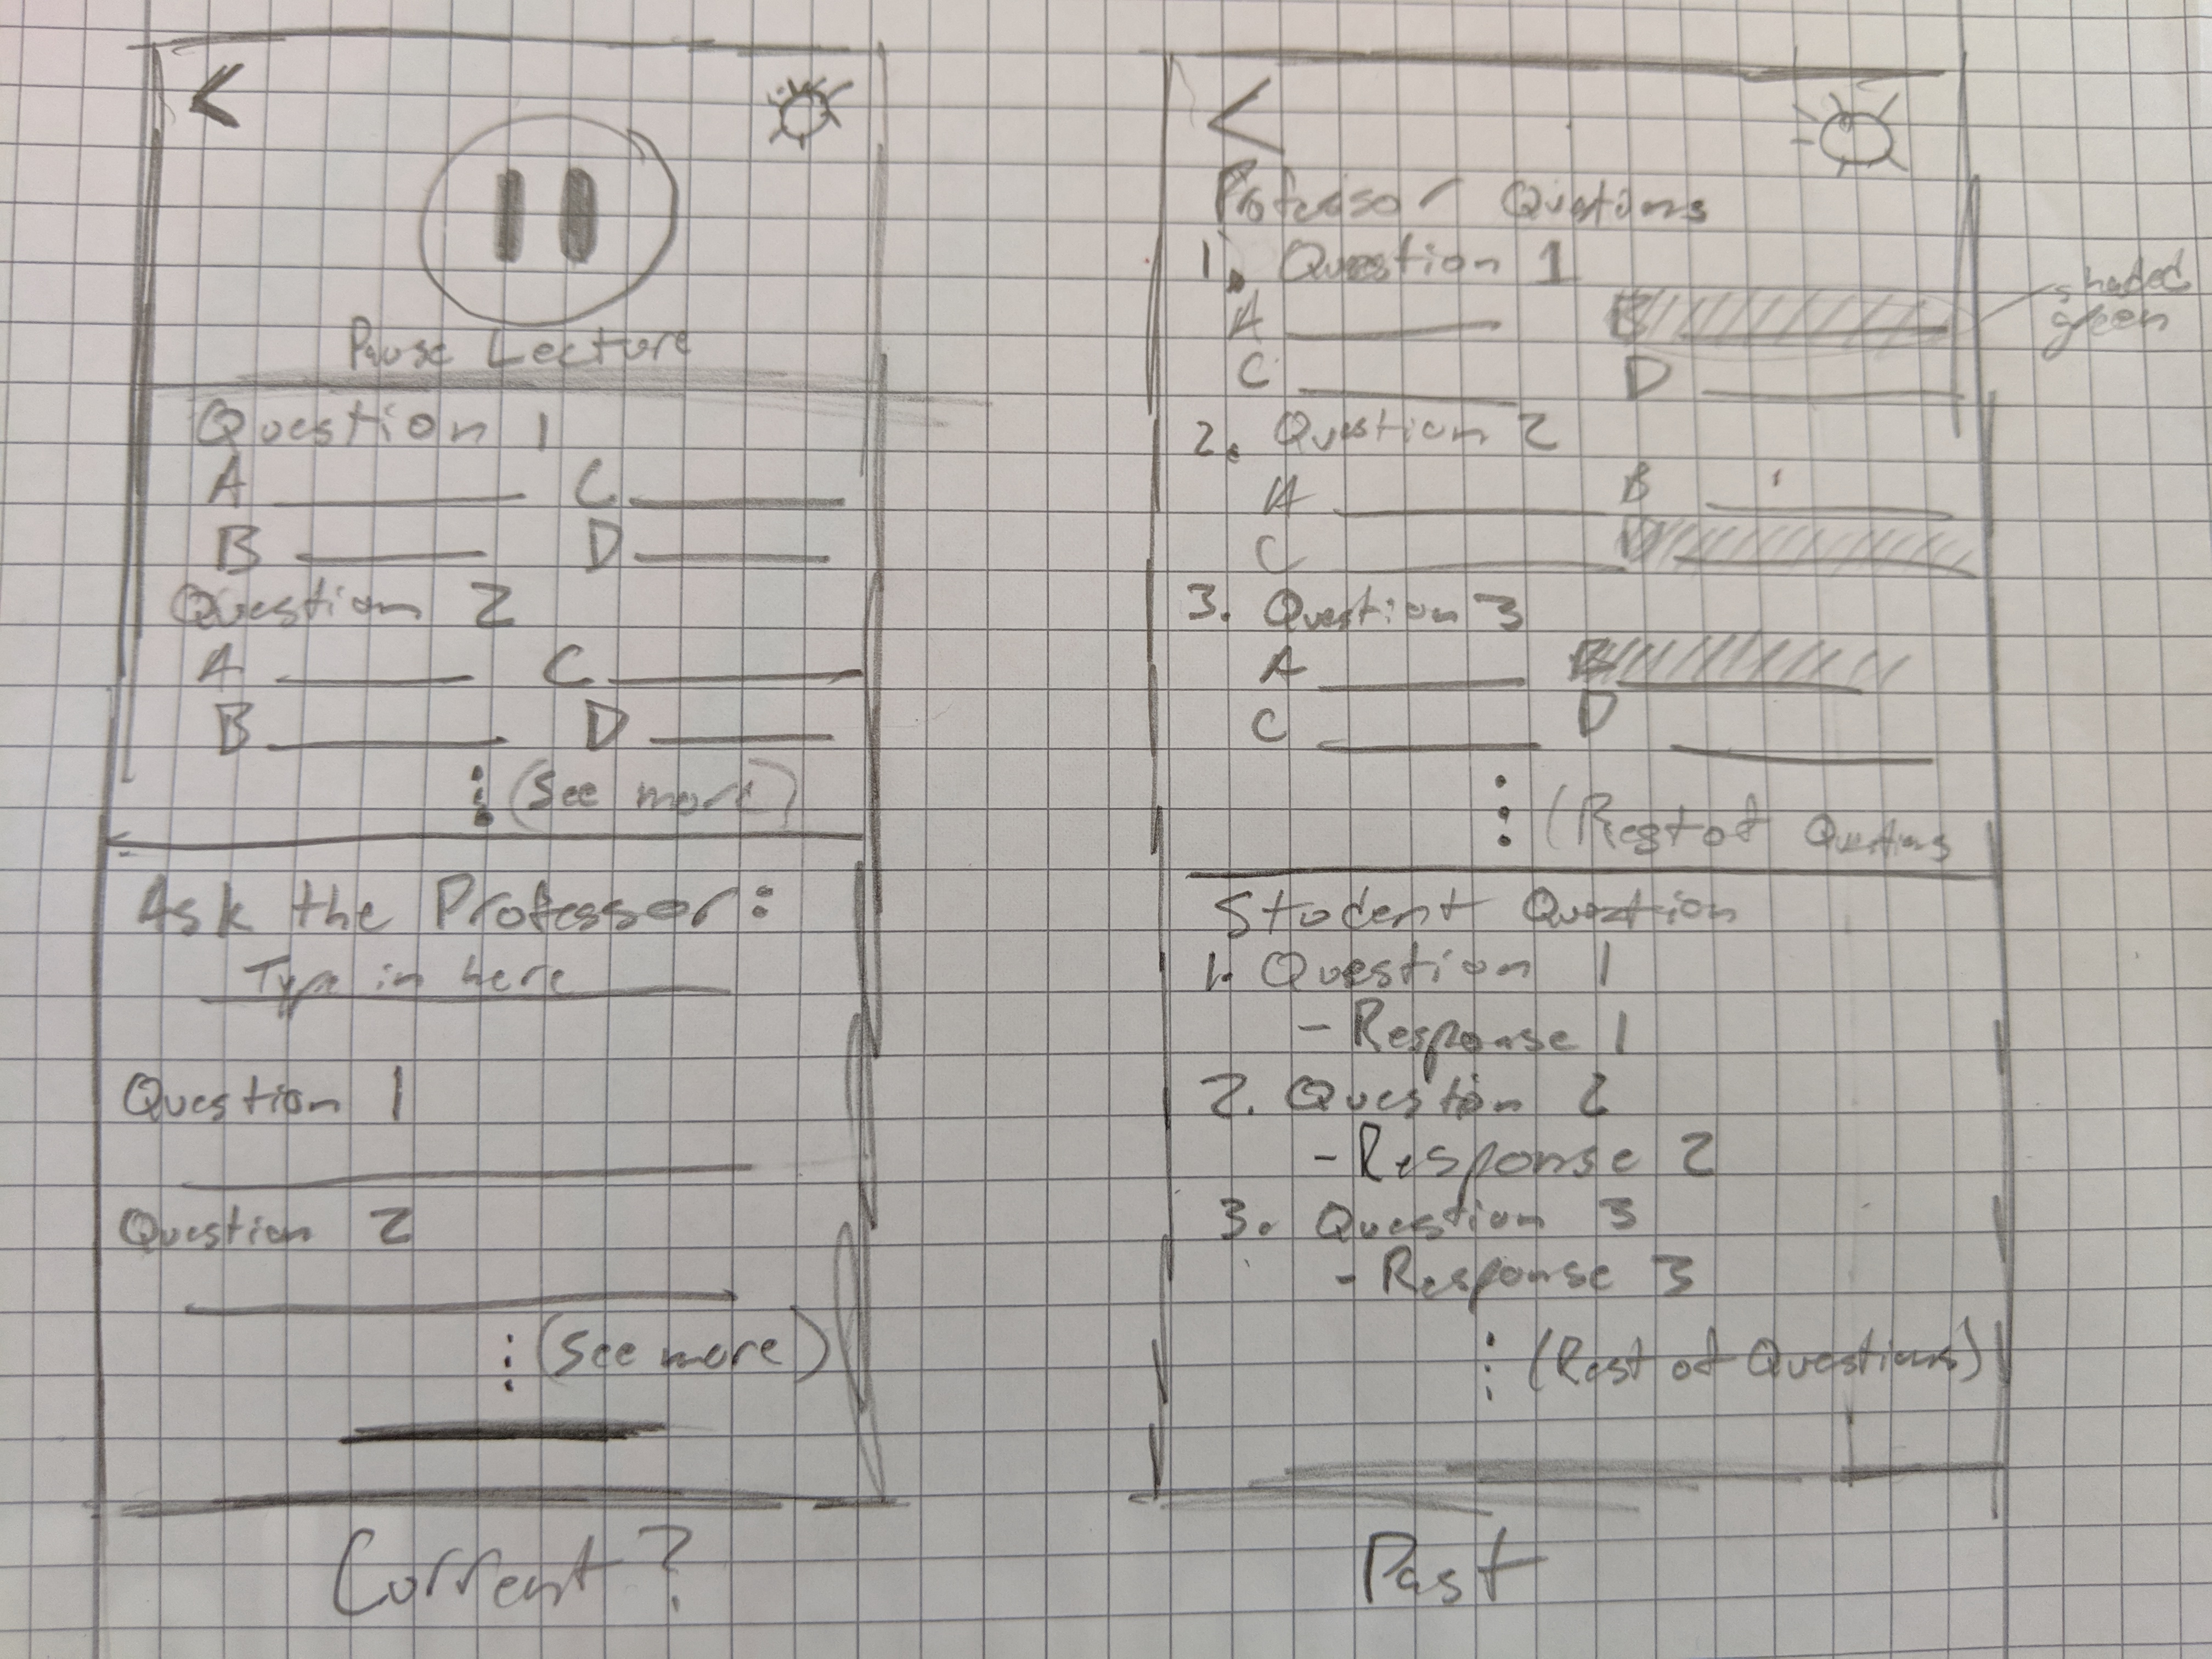 <
Pause Lecture
Question 1
A C
B D
Question 2
A C
B D
(See more)
Ask the Professor:
Type in here
Question 1
Question 2
(See more)
Current?
<
Professor Questions
1. Question 1
A B
shaded
green
C D
2. Question 2
A B
C D
3. Question 3
A B
C D
(Rest of Questions
Student Question
1. Question 1
- Response 1
2. Question 2
- Response 2
3. Question 3
- Response 3
(Rest of Questions)
Past